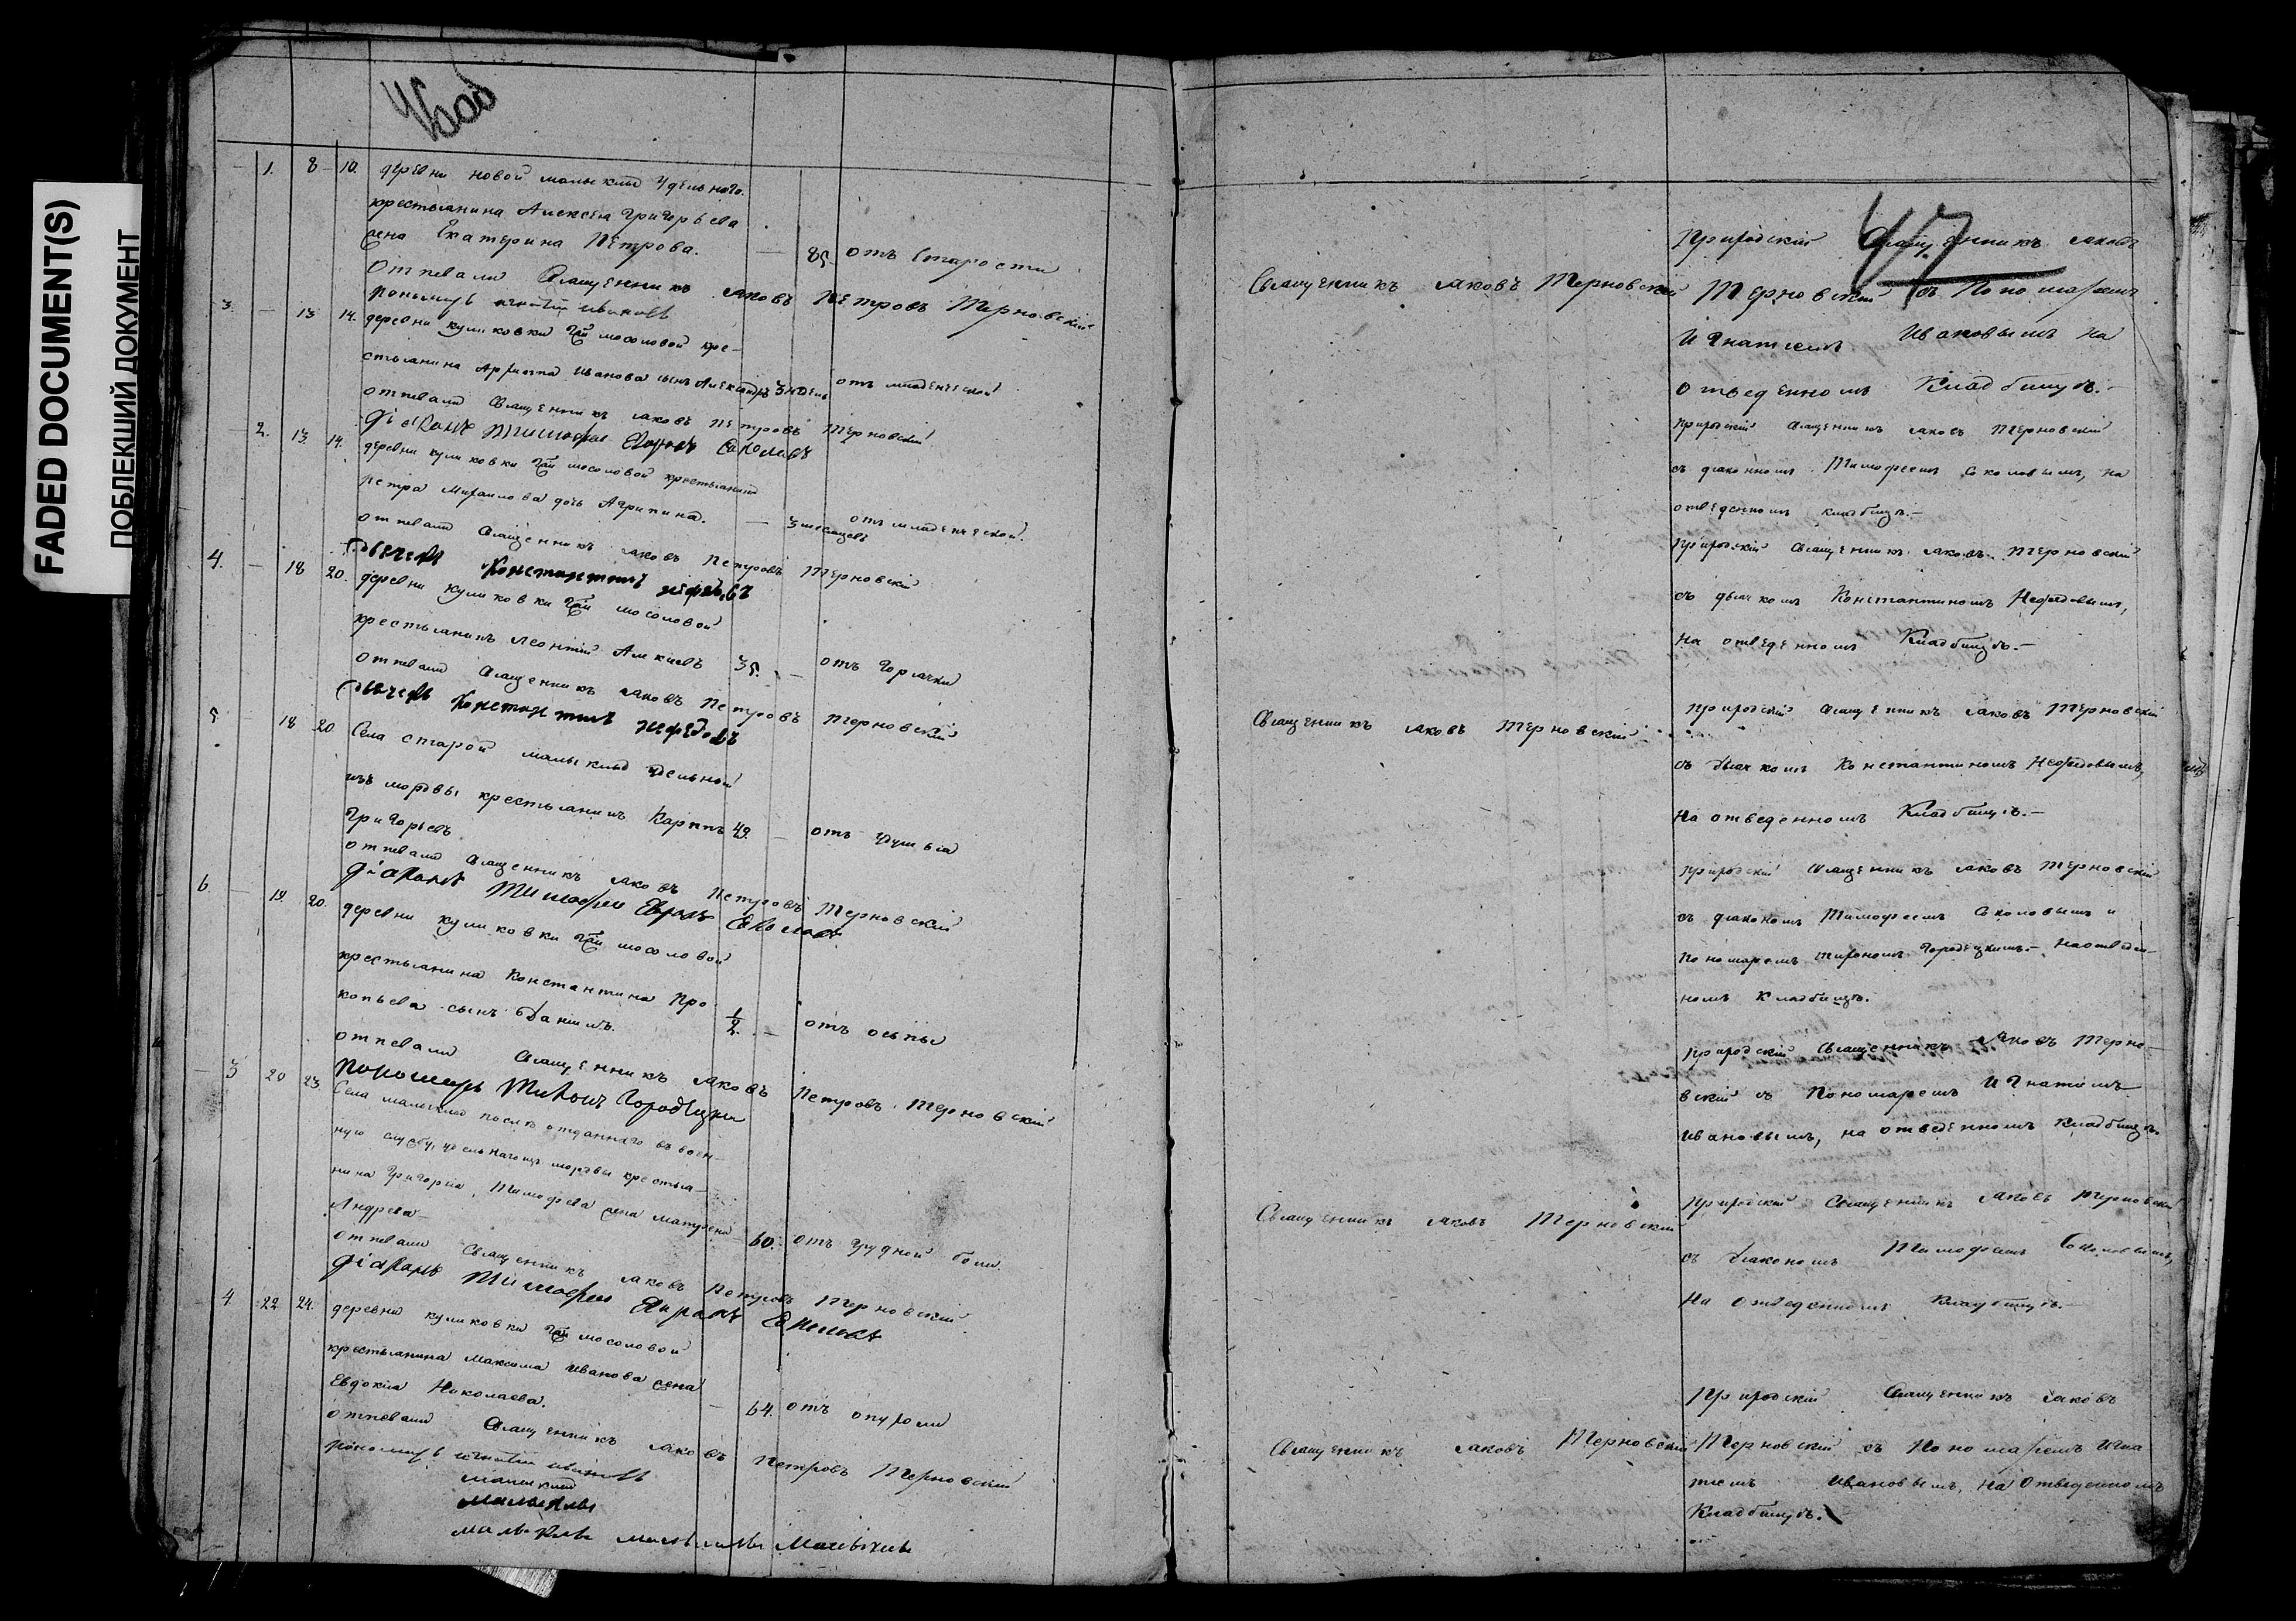 FADED DOCUMENT(S)
ПОБЛЕКШИЙ ДОКУМЕНТ
1. 8 10. деревни новой малыклы удѣльнаго
крестьянина Алексѣя Григорьева
жена Екатерина Петрова. — 85. отъ старости
Отпевали Священникъ Іаковъ Петровъ Терновскій
пономарь Игнатій Ивановъ
3. — 13 14. деревни куликовки Гжи мосоловой кре-
стьянина Архиппа Иванова сынъ Александръ отъ младенческой
отпевали Священникъ Іаковъ Петровъ Терновскій
діаконъ Тимофей Соколовъ
2. 13. 14. деревни куликовки Гжи мосоловой крестьянина
Петра Михайлова дочь Агрипина. — 3 месяцевъ отъ младенческой.
отпевали Священникъ Іаковъ Петровъ Терновскій
Дьячекъ Константинъ Нефедовъ
4. — 18 20. деревни куликовки Гжи мосоловой
крестьянинъ Леонтій 35. — отъ горячки
отпевали Священникъ Іаковъ Петровъ Терновскій
Дьячекъ Константинъ Нефедовъ
5 — 18 20 Села старой малыклы удѣльной
изъ мордвы крестьянинъ Карпъ 49. — отъ удушья
Григорьевъ
отпевали Священникъ Іаковъ Петровъ Терновскій
діаконъ Тимофей Соколовъ
6. — 19. 20. деревни куликовки Гжи мосоловой
крестьянина Константина Про
копьева сынъ Даніилъ. 1/2. — отъ оспы
отпевали Священникъ Іаковъ Петровъ Терновскій
пономарь Тихонъ Городецкій
3 20 23. Села малыклы послѣ отданнаго въ воен-
ную службу, удѣльнаго изъ мордвы крестья-
нина Григорія Тимофеева жена матрена
Андреева 60. отъ грудной боли.
отпевали Священникъ Іаковъ Петровъ Терновскій
діаконъ Тимофей Соколовъ
4. 22 24. деревни куликовки Гжи мосоловой
крестьянина Максима Иванова жена
Евдокія Николаева. — 64. отъ опухоли
отпевали Священникъ Іаковъ Петровъ Терновскій
пономарь Игнатій Ивановъ
малыклы
малыклы
малыклы малыклы Малыклы
47
Приходскій Священникъ Іаковъ
Священникъ Іаковъ Терновскій Терновскій съ Пономаремъ
Игнатіемъ Ивановымъ на
отведенномъ Кладбищѣ.—
Приходскій Священникъ Іаковъ Терновскій
съ діакономъ Тимофеемъ Соколовымъ, на
отведенномъ кладбищѣ.—
Приходскій Священникъ Іаковъ Терновскій
съ дьячкомъ Константиномъ Нефедовымъ,
на отведенномъ Кладбищѣ.—
Священникъ Іаковъ Терновскій Приходскій Священникъ Іаковъ Терновскій
съ дьячкомъ Константиномъ Нефедовымъ,
на отведенномъ Кладбищѣ.—
Приходскій Священникъ Іаковъ Терновскій
съ діакономъ Тимофеемъ Соколовымъ и
Пономаремъ Тихономъ Городецкимъ.— на отведен-
номъ Кладбищѣ.
Приходскій Священникъ Іаковъ Терно-
вскій съ Пономаремъ Игнатіемъ
Ивановымъ, на отведенномъ Кладбищѣ.
Приходскій Священникъ Іаковъ Терновскій
Священникъ Іаковъ Терновскій
съ діакономъ Тимофеемъ Соколовымъ,
На отведенномъ Кладбищѣ.—
Приходскій Священникъ Іаковъ
Священникъ Іаковъ Терновскій Терновскій съ Пономаремъ Игна
тіемъ Ивановымъ, на отведенномъ
Кладбищѣ.